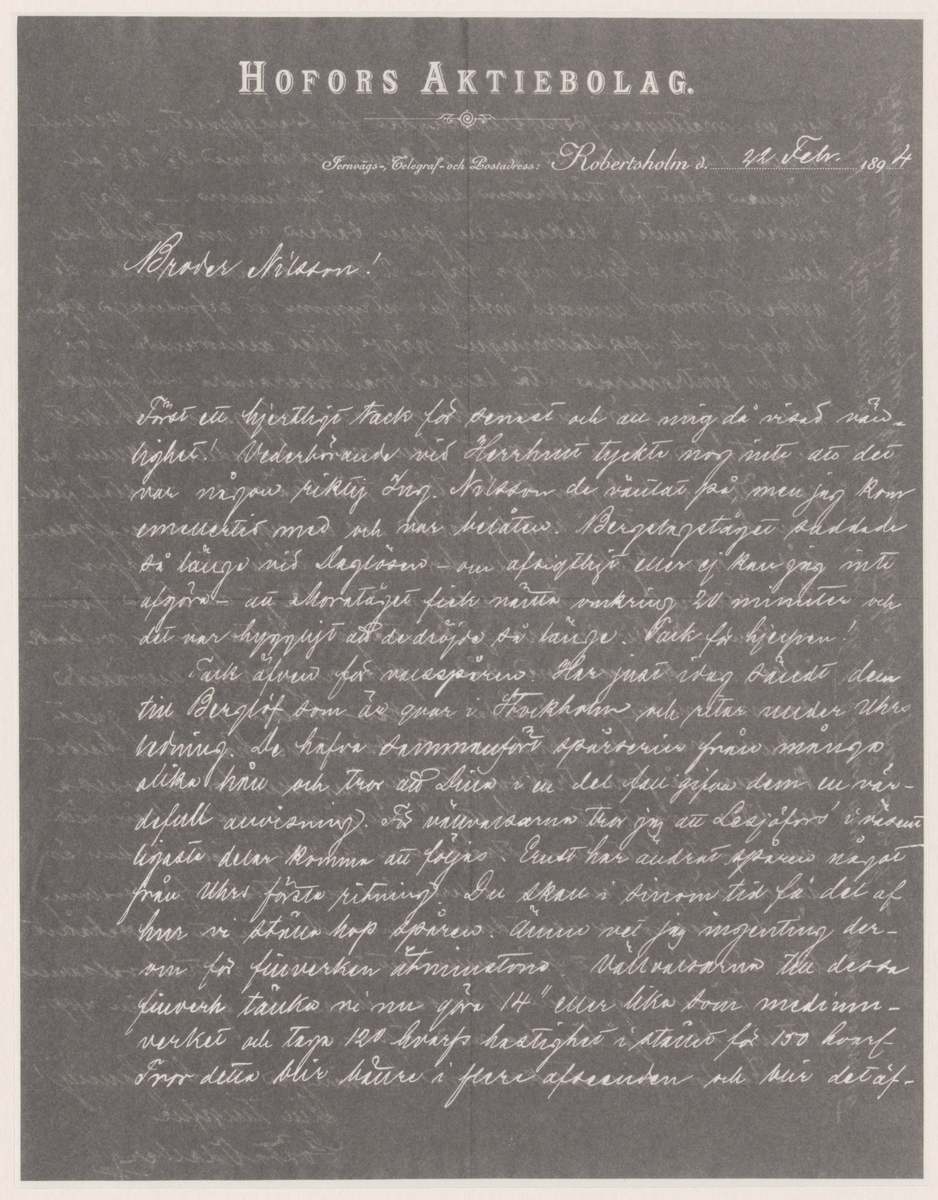 HOFORS AKTIEBOLAG.
Jernvägs-, Telegraf- och Postadress: Robertsholm d. 22 Febr. 1894
Broder Nilsson!
Först ett hjertligt tack för senast och all mig då visad vän-
lighet! Vederbörande vid Herrhult tyckte nog inte att det
var någon riktig Ing. Nilsson de väntat på, men jag kom
emellertid med och var belåten. Bergslagståget saddade
så länge vid Daglösen – om afsigtligt eller ej kan jag inte
afgöra – att Moratåget fick vänta omkring 20 minuter och
det var hyggligt att de dröjde så länge. Tack för hjerpen!
Tack äfven för valsspåren. Har just idag sändt dem
till Berglöf som är qvar i Stockholm och ritar under Uhrs
ledning. De hafva sammanfört spårserier från många
olika håll och tror att Dina i en del fall gifva dem en vär-
defull anvisning. För vällvalsarna tror jag att Lesjöfors' i väsent
ligaste delar komma att följas. Ernst har ändrat spåren något
från Uhrs första ritning. Du skall i sinom tid få del af
hur vi ställa hop spåren. Ännu vet jag ingenting der-
om för finverken åtminstone. Vällvalsarna till dessa
finverk tänka vi nu göra 14" eller lika som medium-
verket och taga 120 hvarfs hastighet i stället för 150 hvarf
Tror detta blir bättre i flere afseenden och blir det äf-